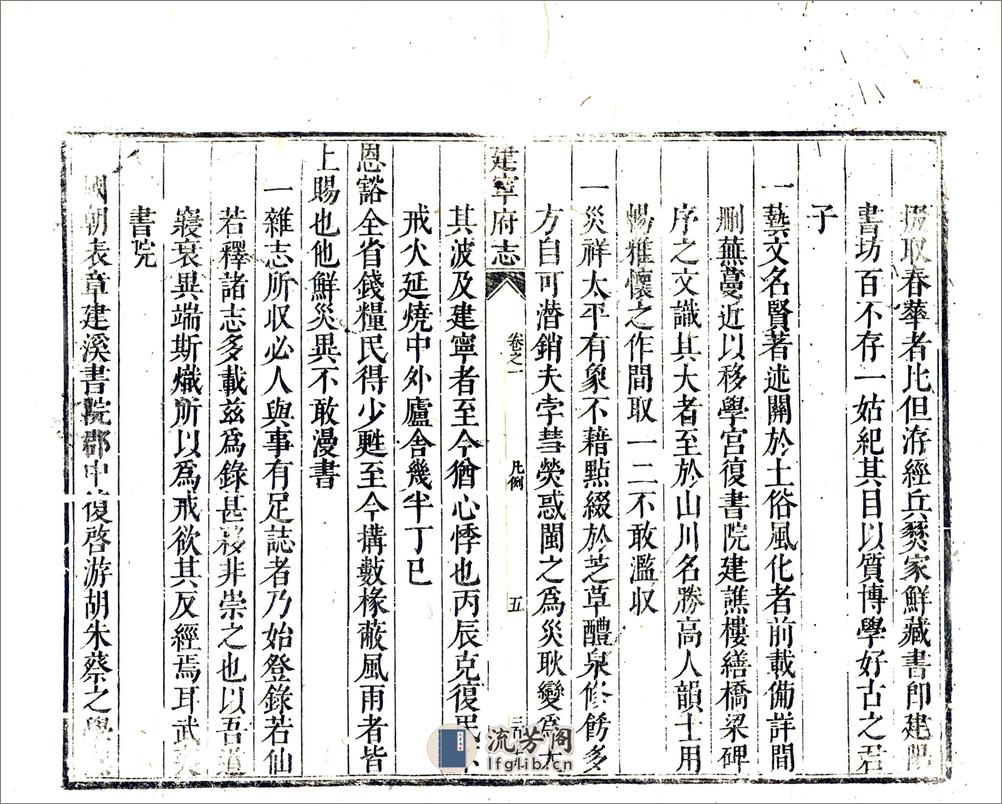 掇取春華者比但洊經兵燹家鮮藏書即建陽
書坊百不存一姑紀其目以質博學好古之君
子
一藝文名賢著述關於土俗風化者前載備詳間
刪蕪蔓近以移學宮復書院建譙樓繕橋梁碑
序之文識其大者至於山川名勝高人韻士用
暢雅懷之作間取一二不敢濫收
一災祥太平有象不藉點綴於芝草醴泉修餙多
方自可潛銷夫孛彗熒惑閩之為災耿變為大
建寧府志
卷之一
凡例
五
其波及建寧者至今猶心悸也丙辰克復
戒火延燒中外廬舍幾半丁巳
恩豁全省錢糧民得少甦至今搆數椽蔽風雨者皆
上賜也他鮮災異不敢漫書
一雜志所収必人與事有足誌者乃始登錄若仙
若釋諸志多載兹為錄甚移非崇之也以吾道
寢衰異端斯熾所以為戒欲其反經焉耳武夷
書院
國朝表章建溪書院郡中復啓游胡朱蔡之學
流芳阁
lfglib.cn